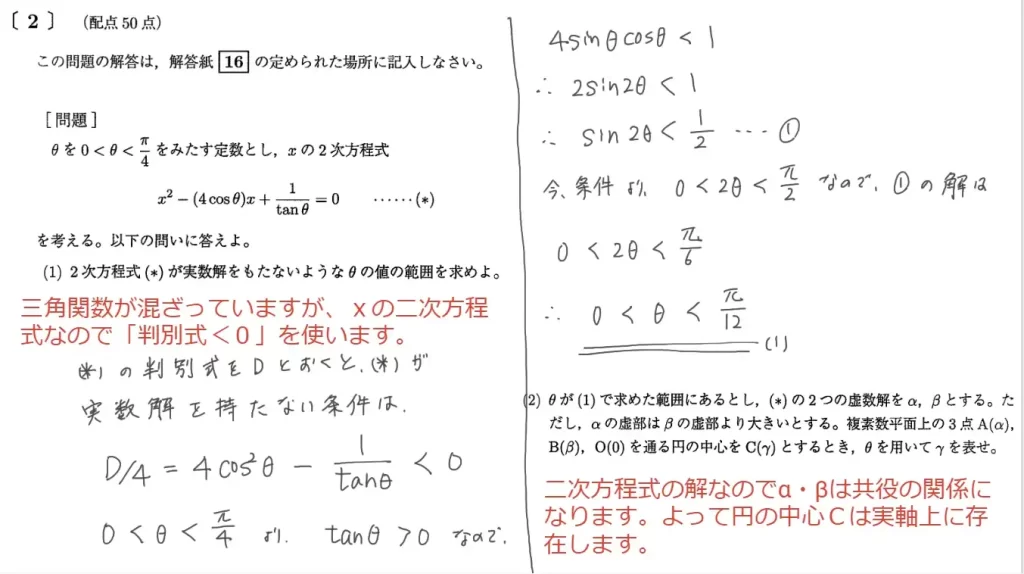 〔 2 〕 (配点 50 点)
この問題の解答は，解答紙 16 の定められた場所に記入しなさい。
［問題］
θ を 0 < θ < π/4 をみたす定数とし，x の 2 次方程式
x² − (4 cos θ)x + 1/tan θ = 0 ……(*)
を考える。以下の問いに答えよ。
(1) 2 次方程式 (*) が実数解をもたないような θ の値の範囲を求めよ。
三角関数が混ざっていますが、ｘの二次方程
式なので「判別式＜０」を使います。
(*) の判別式を D とおくと、(*) が
実数解を持たない条件は、
D/4 = 4cos²θ − 1/tanθ < 0
0 < θ < π/4 より、 tanθ > 0 なので、
4sinθcosθ < 1
∴ 2sin2θ < 1
∴ sin2θ < 1/2 … ①
今、条件より、 0 < 2θ < π/2 なので、① の解は
0 < 2θ < π/6
∴ 0 < θ < π/12
(1)
(2) θ が (1) で求めた範囲にあるとし，(*) の 2 つの虚数解を α，β とする。た
だし，α の虚部は β の虚部より大きいとする。複素数平面上の 3 点 A(α)，
B(β)，O(0) を通る円の中心を C(γ) とするとき，θ を用いて γ を表せ。
二次方程式の解なのでα・βは共役の関係に
なります。よって円の中心Ｃは実軸上に存
在します。